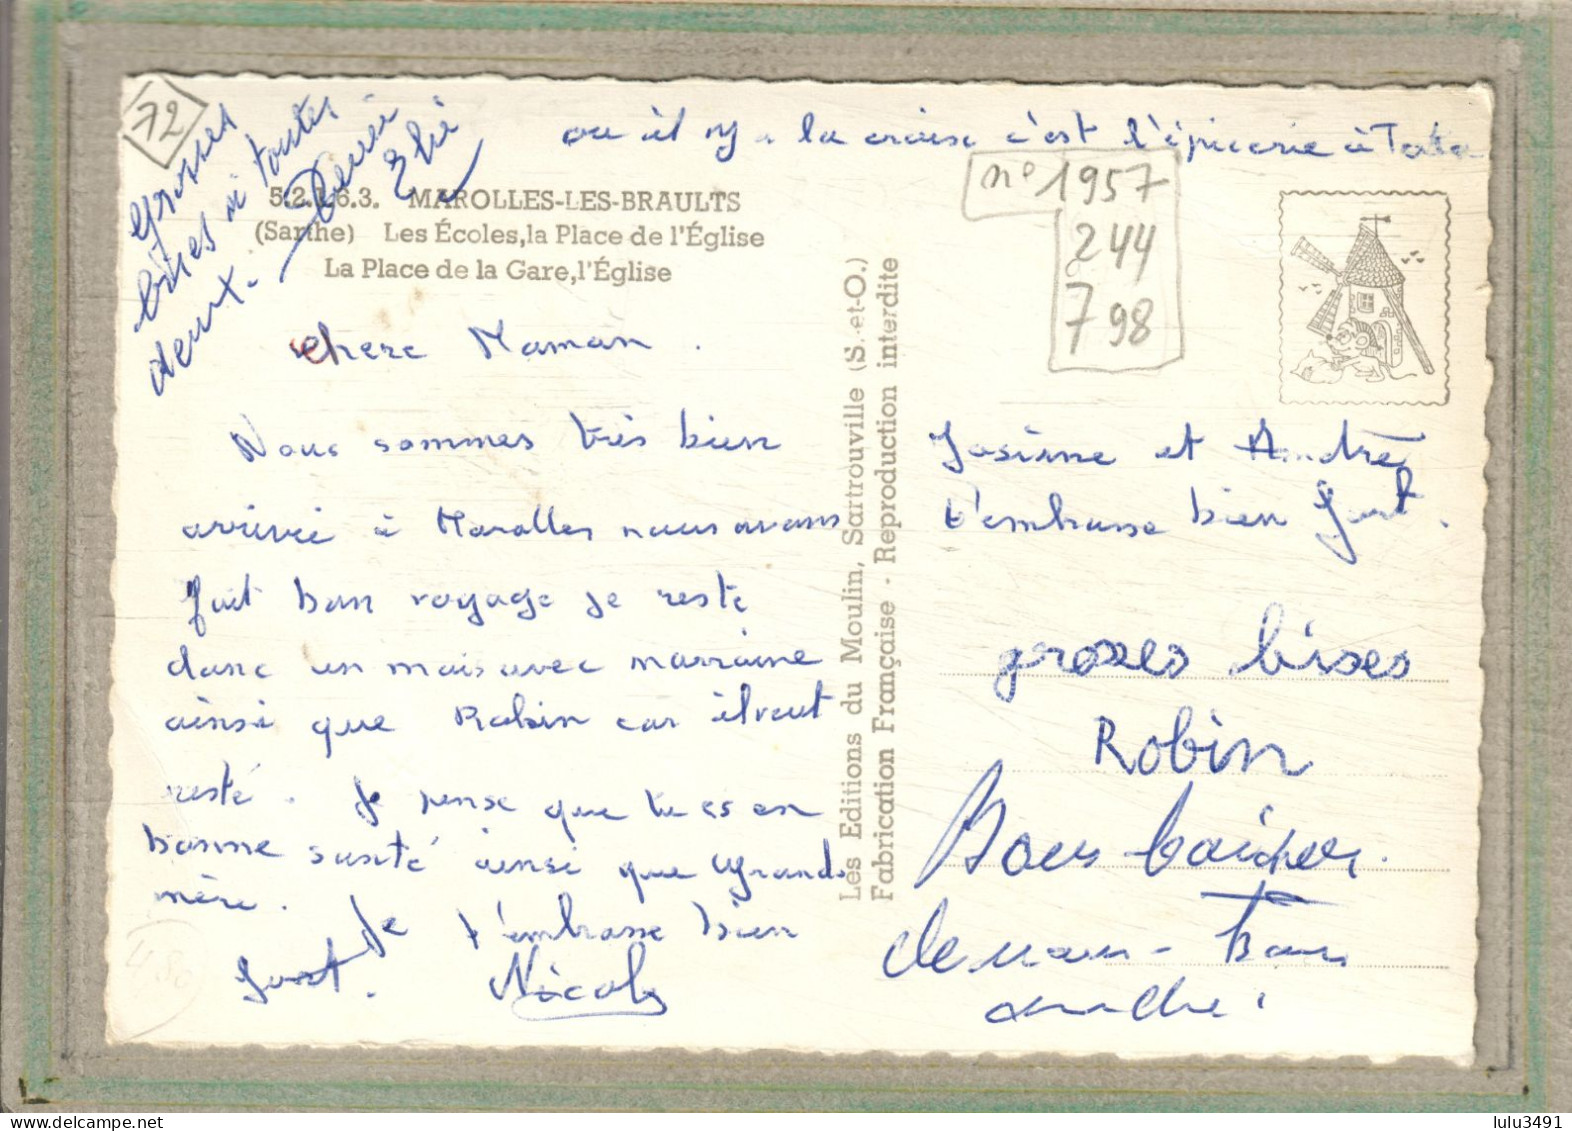 72
Grosses
bises à toutes
deux.
ou il y a la croise c'est l'épicerie à Tata
5.2.1.6.3. MAROLLES-LES-BRAULTS
(Sarthe) Les Écoles, la Place de l'Église
La Place de la Gare, l'Église
n° 1957
244
798
chere Maman.
Nous sommes très bien
arrivée à Marolles nous avons
fait bon voyage je reste
donc un mois avec marraine
ainsi que Robin car il veut
resté. Je pense que tu es en
bonne santé ainsi que Grand-
mère. Je t'embrasse bien
fort. Nicole
Les Editions du Moulin, Sartrouville (S.-et-O.)
Fabrication Française - Reproduction interdite
Josiane et Andrée
t'embrasse bien fort.
grosses bises
Robin
Bons baisers
de nous - Tous
4.80
lulu3491
www.delcampe.net